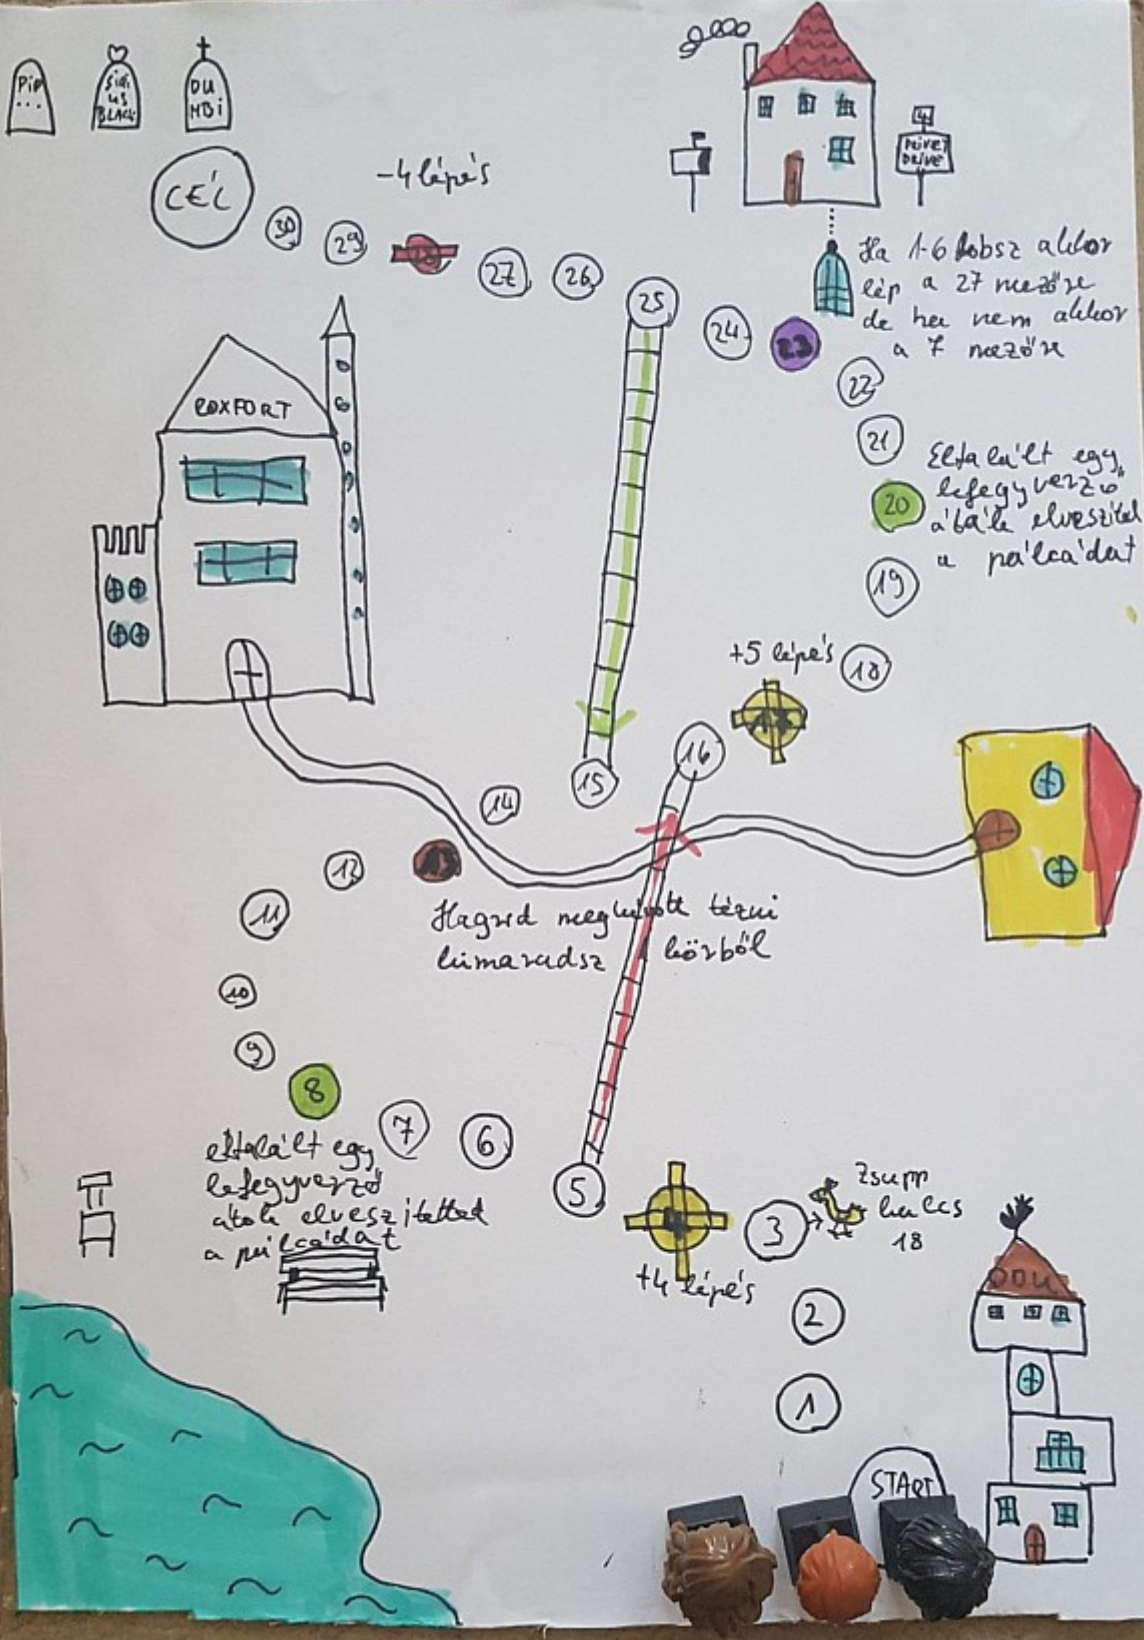 PiP
...
SiRi
US
BLACK
DU
MBi
4
PRIVET
DRIVE
CÉL
-4 lépés
30
29
27
26
25
24
23
22
21
20
19
18
Ha 1-6 dobsz akkor
lép a 27 mezőre
de ha nem akkor
a 7 mezőre
ROXFORT
Eltalált egy
lefegyverző
átok elveszited
a pálcádat
+5 lépés
17
16
15
14
13
11
10
9
8
7
6
5
4
3
2
1
Hagrid meghívott teázni
kimaradsz körből
eltalált egy
lefegyverző
átok elveszitetted
a pálcádat
Zsupp
kulcs
18
+4 lépés
ODU
START